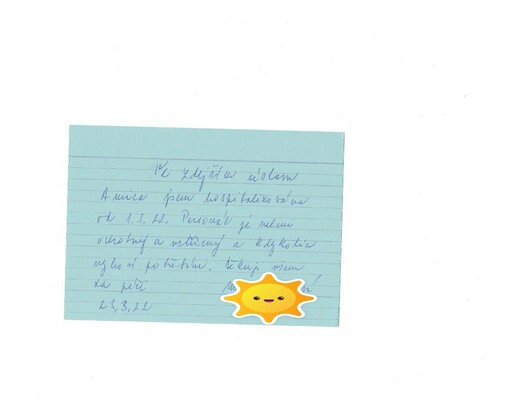 Ve zdejším ústavu
jsem hospitalizována
od 1.3.22. Personál je velmi
ochotný a vstřícný a kdykoliv
vyhoví potřebám. Děkuji všem
za péči.
23.3.22